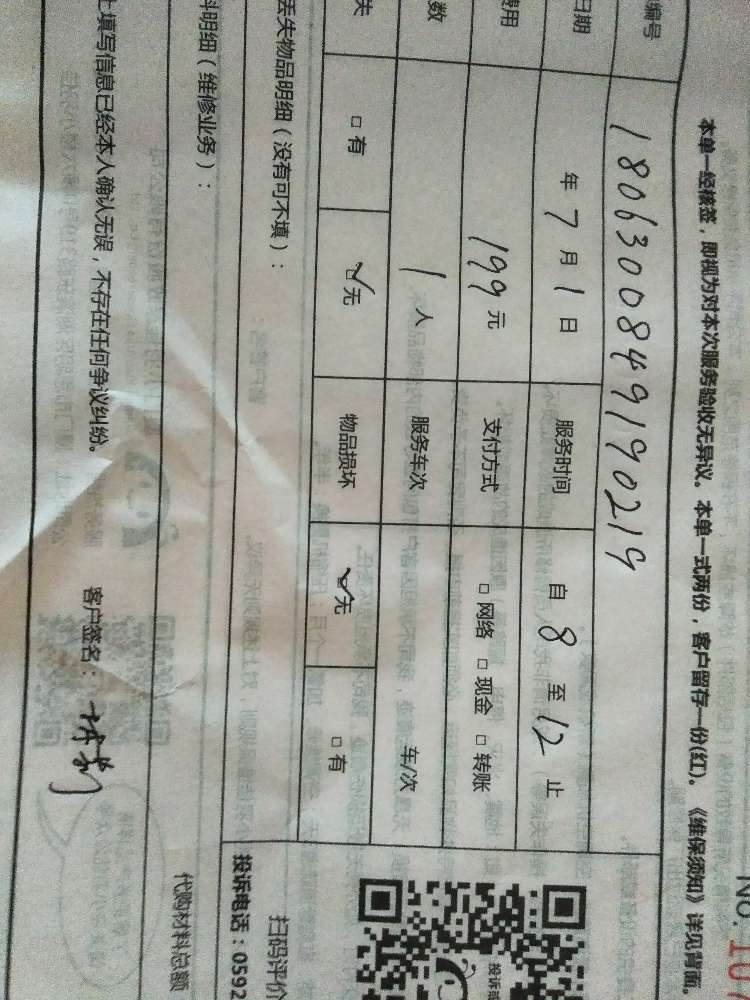 No. 107
本单一经核签，即视为对本次服务验收无异议。本单一式两份，客户留存一份(红)。《维保须知》详见背面。
编号 1806300849190219
日期 年 7 月 1 日 服务时间 自 8 至 12 止
费用 199 元 支付方式 □ 网络 □ 现金 □ 转账
数 1 人 服务车次 车/次
失 □ 有 ☑ 无 物品损坏 ☑ 无 □ 有
丢失物品明细（没有可不填）：
料明细（维修业务）：
投诉
扫码评价
投诉电话：0592
代购材料总额
上填写信息已经本人确认无误，不存在任何争议纠纷。 客户签名：